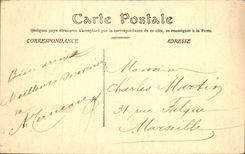 Carte Postale
Quelques pays étrangers n'acceptent pas la correspondance de ce côté, se renseigner à la Poste.
CORRESPONDANCE
ADRESSE
Bien
Meilleurs
Monsieur
Charles Martin
31, rue
Marseille